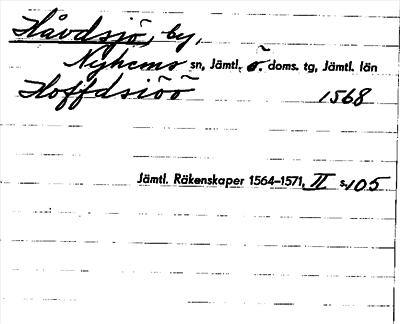 Håvdsjö, by,
Nyhems sn, Jämtl. ö. doms. tg, Jämtl. län
Hoffdsiöö 1568
Jämtl. Räkenskaper 1564–1571, II s. 105